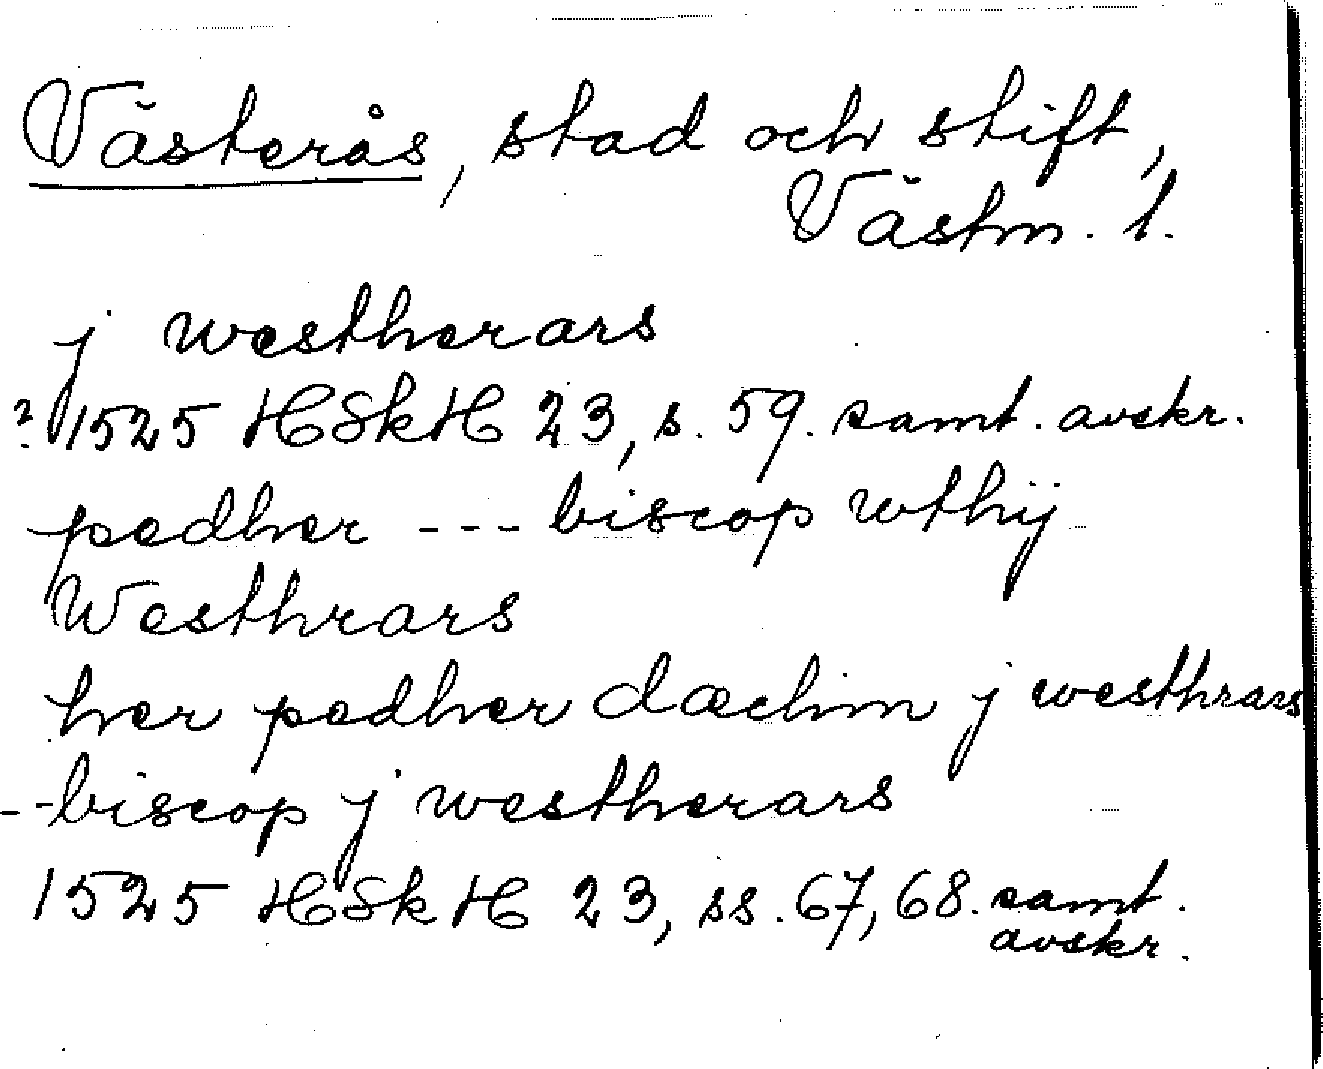 Västerås, stad och stift,
Västm. l.
j westherars
? 1525 HSkH 23, s. 59. samt. avskr.
pedher --- biscop wthij
Westhrars
her pedher dæchm j westhrars
--biscop j westherars
1525 HSkH 23, ss. 67, 68. samt.
avskr.